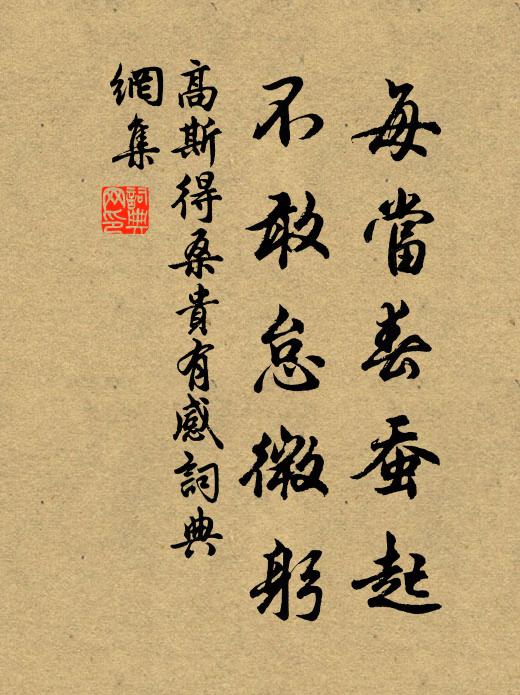 每當春蚕起
不敢怠微躬
高斯得桑貴有感詞典
網集
詞典
网印